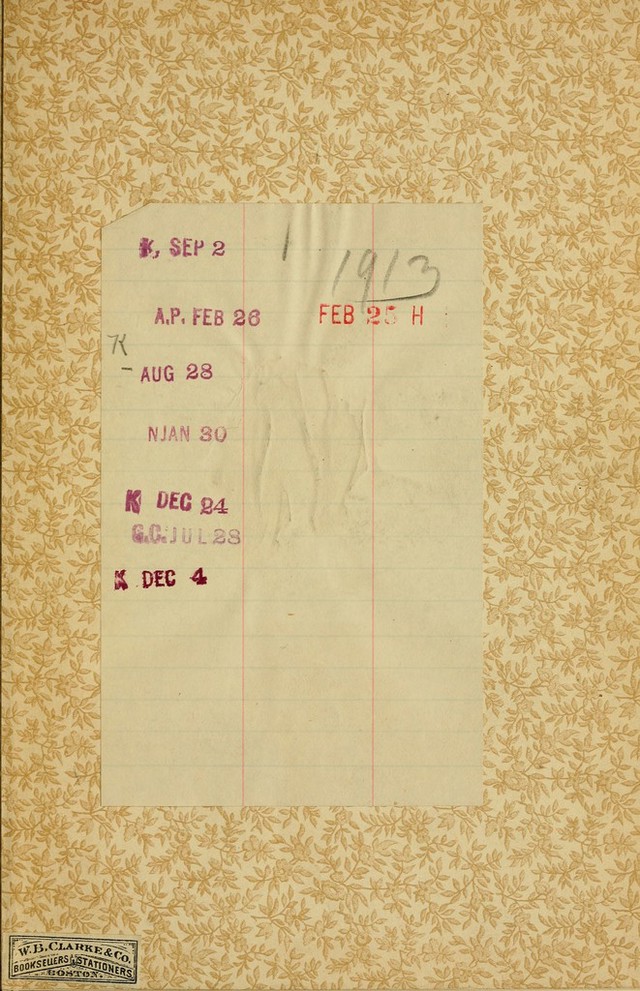 K, SEP 2
1913
A.P. FEB 26 FEB 25 H
K
- AUG 28
NJAN 30
K DEC 24
G.C. JUL 28
K DEC 4
W. B. CLARKE & CO.
BOOKSELLERS & STATIONERS
BOSTON.